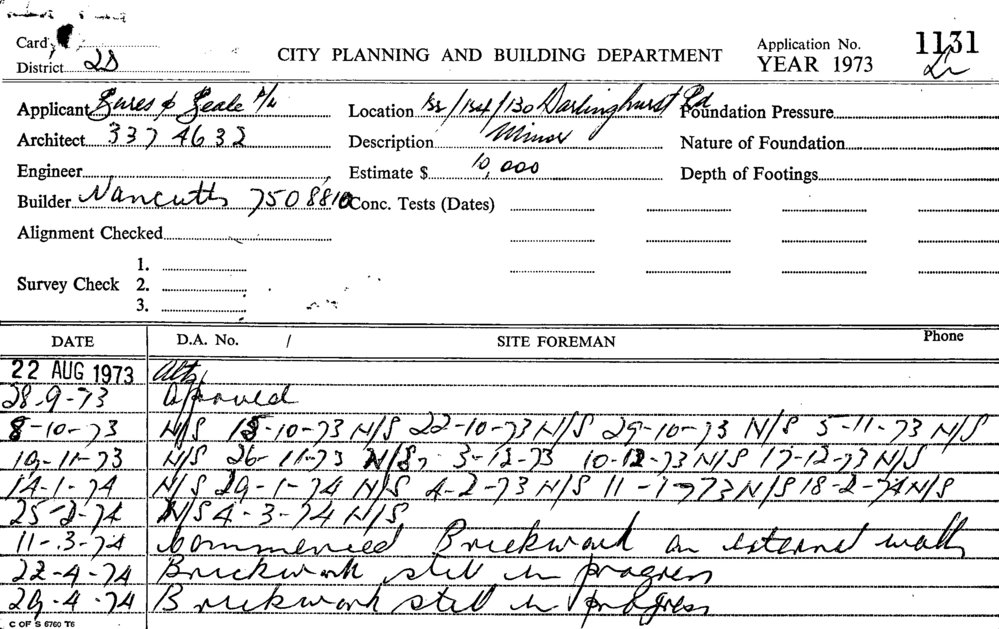 Card
District 2D
CITY PLANNING AND BUILDING DEPARTMENT
Application No. 1131
YEAR 1973
Applicant
Location /130 Darlinghurst Rd
Foundation Pressure
Architect 337 4632
Description Minor
Nature of Foundation
Engineer
Estimate $ 10,000
Depth of Footings
Builder Nancutts 7508810
Conc. Tests (Dates)
Alignment Checked
1.
Survey Check 2.
3.
DATE D.A. No. / SITE FOREMAN Phone
22 AUG 1973 Alts
28-9-73 Approved
8-10-73 N/S 15-10-73 N/S 22-10-73 N/S 29-10-73 N/S 5-11-73 N/S
19-11-73 N/S 26-11-73 N/S 3-12-73 10-12-73 N/S 17-12-73 N/S
14-1-74 N/S 29-1-74 N/S 4-2-73 N/S 11-1-773 N/S 18-2-74 N/S
25-2-74 N/S 4-3-74 N/S
11-3-74 Commenced Brickwork on external walls
22-4-74 Brickwork still in progress
29-4-74 Brickwork still in progress
C OF S 6760 T6